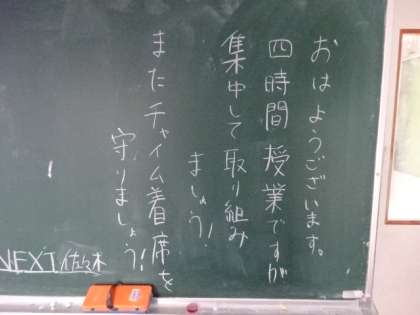 おはようございます。
四時間授業ですが
集中して取り組み
ましょう!
またチャイム着席を
守りましょう!
NEXT 佐々木